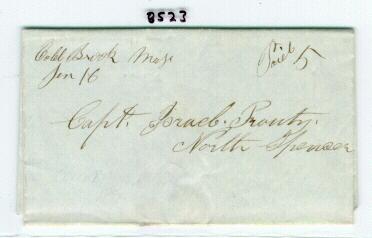 8523
Cold Brook Mass
Jan 16
Paid 5
Capt. Israel Prouty.
North Spencer